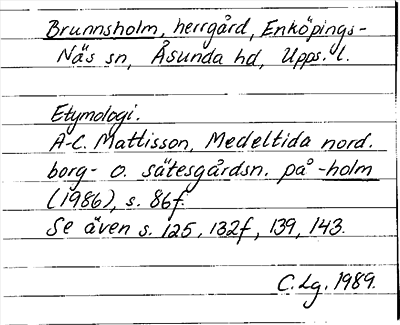 Brunnsholm, herrgård, Enköpings-
Näs sn, Åsunda hd, Upps. l.
Etymologi.
A-C. Mattisson, Medeltida nord.
borg- o. sätesgårdsn. på -holm
(1986), s. 86f.
Se även s. 125, 132f, 139, 143.
C. Lg. 1989.